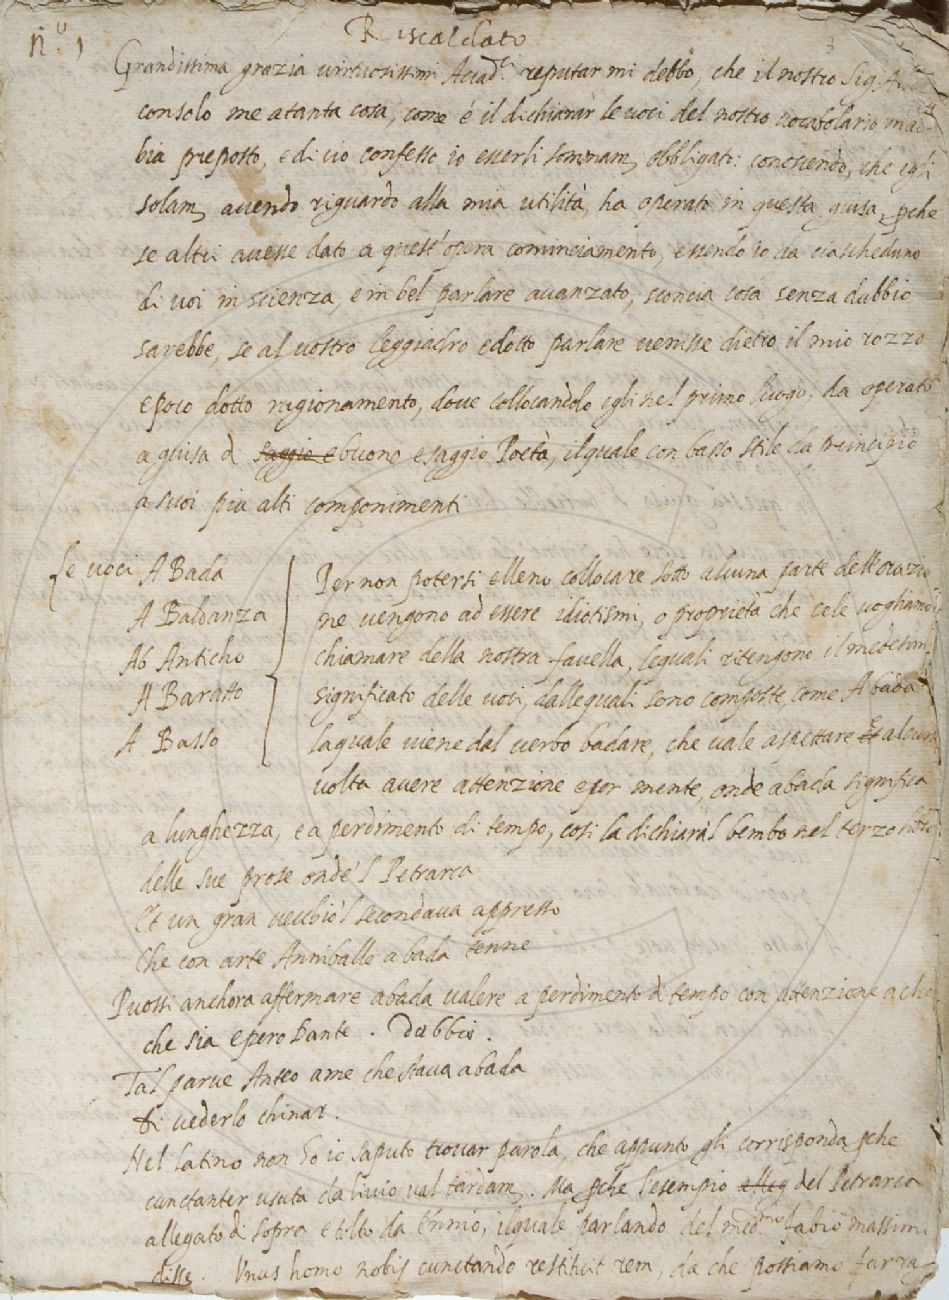 n.º 1
Riscaldato
Grandissima grazia virtuosissimi Accad.ci reputar mi debbo, che il nostro Sig.
consolo me a tanta cosa, come é il dichiarar le voci del nostro vocabolario
bia preposto, e di ciò confesso io esserli sommam. obbligato: conoscendo, che egli
solam. avendo riguardo alla mia utilità, ha operato in questa guisa, pche
se altri avesse dato a quest'opera cominciamento, essendo io da ciascheduno
di voi in scienza, e in bel parlare avanzato, sconcia cosa senza dubbio
sarebbe, se al vostro leggiadro e dotto parlare venisse dietro il mio rozzo
e poco dotto ragionamento, dove collocandolo egli nel primo luogo, ha operato
a guisa di saggio e buono e saggio Poeta, il quale con basso stile da principio
a suoi piu alti componimenti
Le voci A Bada
A Baldanza
Ab Anticho
A Baratto
A Basso
Per non potersi elleno collocare sotto alcuna parte dell'orazio
ne vengono ad essere idiotismi, o proprietà che cele vogliamo
chiamare della nostra favella, lequali ritengono il medesim
significato delle voci, dallequali sono composte, come A bada
laquale viene dal verbo badare, che vale aspettare Et alcuna
volta avere attenzione e por mente, onde abada significa
a lunghezza, e a perdimento di tempo, cosi la dichiara'l bembo nel terzo libro
delle sue prose onde'l Petrarca
Et un gran vecchio'l secondava appresso
Che con arte Anniballe a bada tenne
Puossi anchora affermare abada valere a perdimento di tempo con attenzione a che
che sia e pero Dante. Dubbio.
Tal parve Anteo a me che stava abada
Di vederlo chinar.
Nel latino non ho io saputo trovar parola, che appunto gli corrisponda pche
cunctanter usata da livio val tardam. Ma pche l'esempio del Petrarca
allegato di sopra e tolto da Ennio, il quale parlando del med.mo fabio massim
disse. Unus homo nobis cunctando restituit rem, da che possiamo